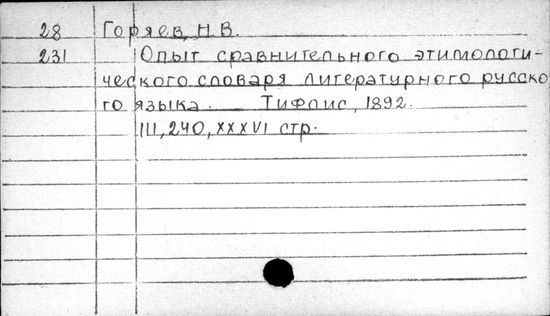 28 Горяев, Н. В.
231 Опыт сравнительного этимологи-
ческого словаря литературного русско
го языка. Тифлис, 1892.
III, 240, XXXVI стр.